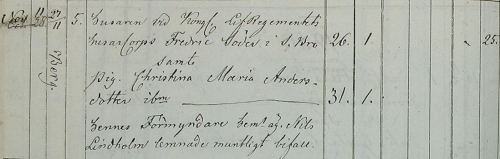 27/11 5. Husaren vid Kongl. LifRegementets
HusarCorps Fredric Söder i S. Bro 26. 1. 25.
samt
Pig. Christina Maria Anders-
dotter ibm 31. 1.
Hennes Förmyndare Hemm.äg. Nils
Lindholm lemnade muntligt bifall.
Berg.